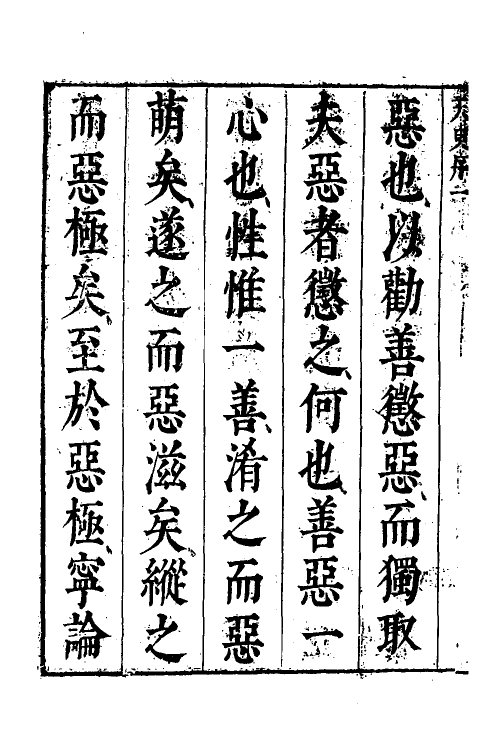 惡也以勸善懲惡而獨取
夫惡者懲之何也善惡一
心也性惟一善淆之而惡
萌矣遂之而惡滋矣縱之
而惡極矣至於惡極寧論